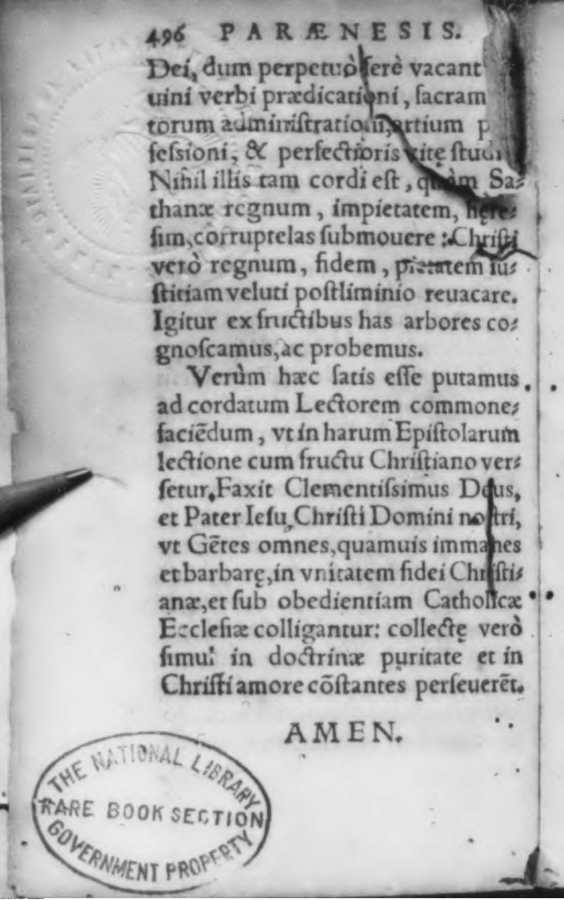 496 PARÆNESIS.
Dei, dum perpetuò ferè vacant
uini verbi prædicationi, sacram
torum administrationi, artium p
fessioni, & perfectioris vitę studi
Nihil illis tam cordi est, quàm Sa-
thanæ regnum, impietatem, hęre-
sim, corruptelas submouere: Christi
verò regnum, fidem, pietatem iu-
stitiam veluti postliminio reuacare.
Igitur ex fructibus has arbores co-
gnoscamus, ac probemus.
Verùm hæc satis esse putamus
ad cordatum Lectorem commone-
faciẽdum, vt in harum Epistolarum
lectione cum fructu Christiano ver-
setur. Faxit Clementissimus Deus,
et Pater Iesu Christi Domini nostri,
vt Gẽtes omnes, quamuis immanes
et barbarę, in vnitatem fidei Christi-
anæ, et sub obedientiam Catholicæ
Ecclesiæ colligantur: collectę verò
simul in doctrinæ puritate et in
Christi amore cõstantes perseuerẽt.
AMEN.
THE NATIONAL LIBRARY
RARE BOOK SECTION
GOVERNMENT PROPERTY